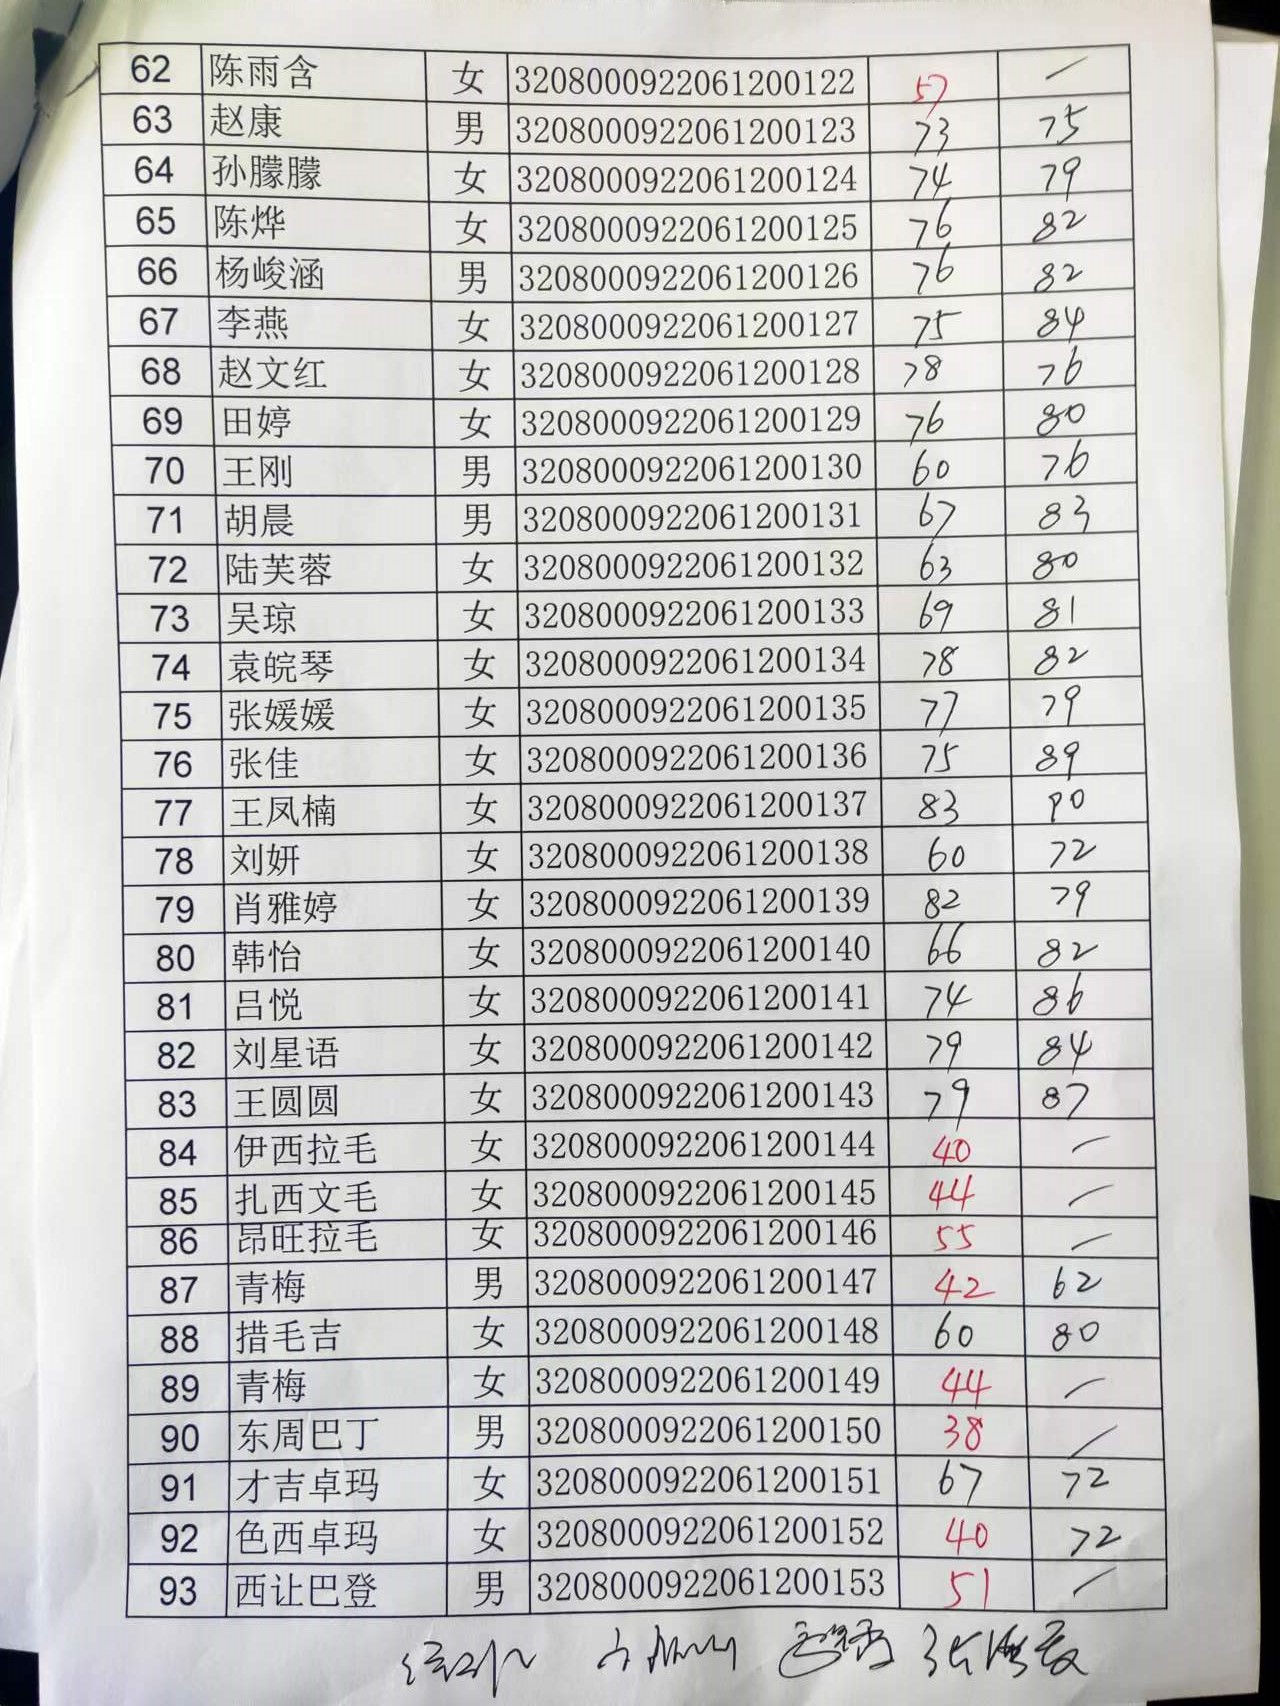 62 陈雨含 女 3208000922061200122 57 /
63 赵康 男 3208000922061200123 73 75
64 孙朦朦 女 3208000922061200124 74 79
65 陈烨 女 3208000922061200125 76 82
66 杨峻涵 男 3208000922061200126 76 82
67 李燕 女 3208000922061200127 75 84
68 赵文红 女 3208000922061200128 78 76
69 田婷 女 3208000922061200129 76 80
70 王刚 男 3208000922061200130 60 76
71 胡晨 男 3208000922061200131 67 83
72 陆芙蓉 女 3208000922061200132 63 80
73 吴琼 女 3208000922061200133 69 81
74 袁皖琴 女 3208000922061200134 78 82
75 张媛媛 女 3208000922061200135 77 79
76 张佳 女 3208000922061200136 75 89
77 王凤楠 女 3208000922061200137 83 90
78 刘妍 女 3208000922061200138 60 72
79 肖雅婷 女 3208000922061200139 82 79
80 韩怡 女 3208000922061200140 66 82
81 吕悦 女 3208000922061200141 74 86
82 刘星语 女 3208000922061200142 79 84
83 王圆圆 女 3208000922061200143 79 87
84 伊西拉毛 女 3208000922061200144 40 /
85 扎西文毛 女 3208000922061200145 44 /
86 昂旺拉毛 女 3208000922061200146 55 /
87 青梅 男 3208000922061200147 42 62
88 措毛吉 女 3208000922061200148 60 80
89 青梅 女 3208000922061200149 44 /
90 东周巴丁 男 3208000922061200150 38 /
91 才吉卓玛 女 3208000922061200151 67 72
92 色西卓玛 女 3208000922061200152 40 72
93 西让巴登 男 3208000922061200153 51 /